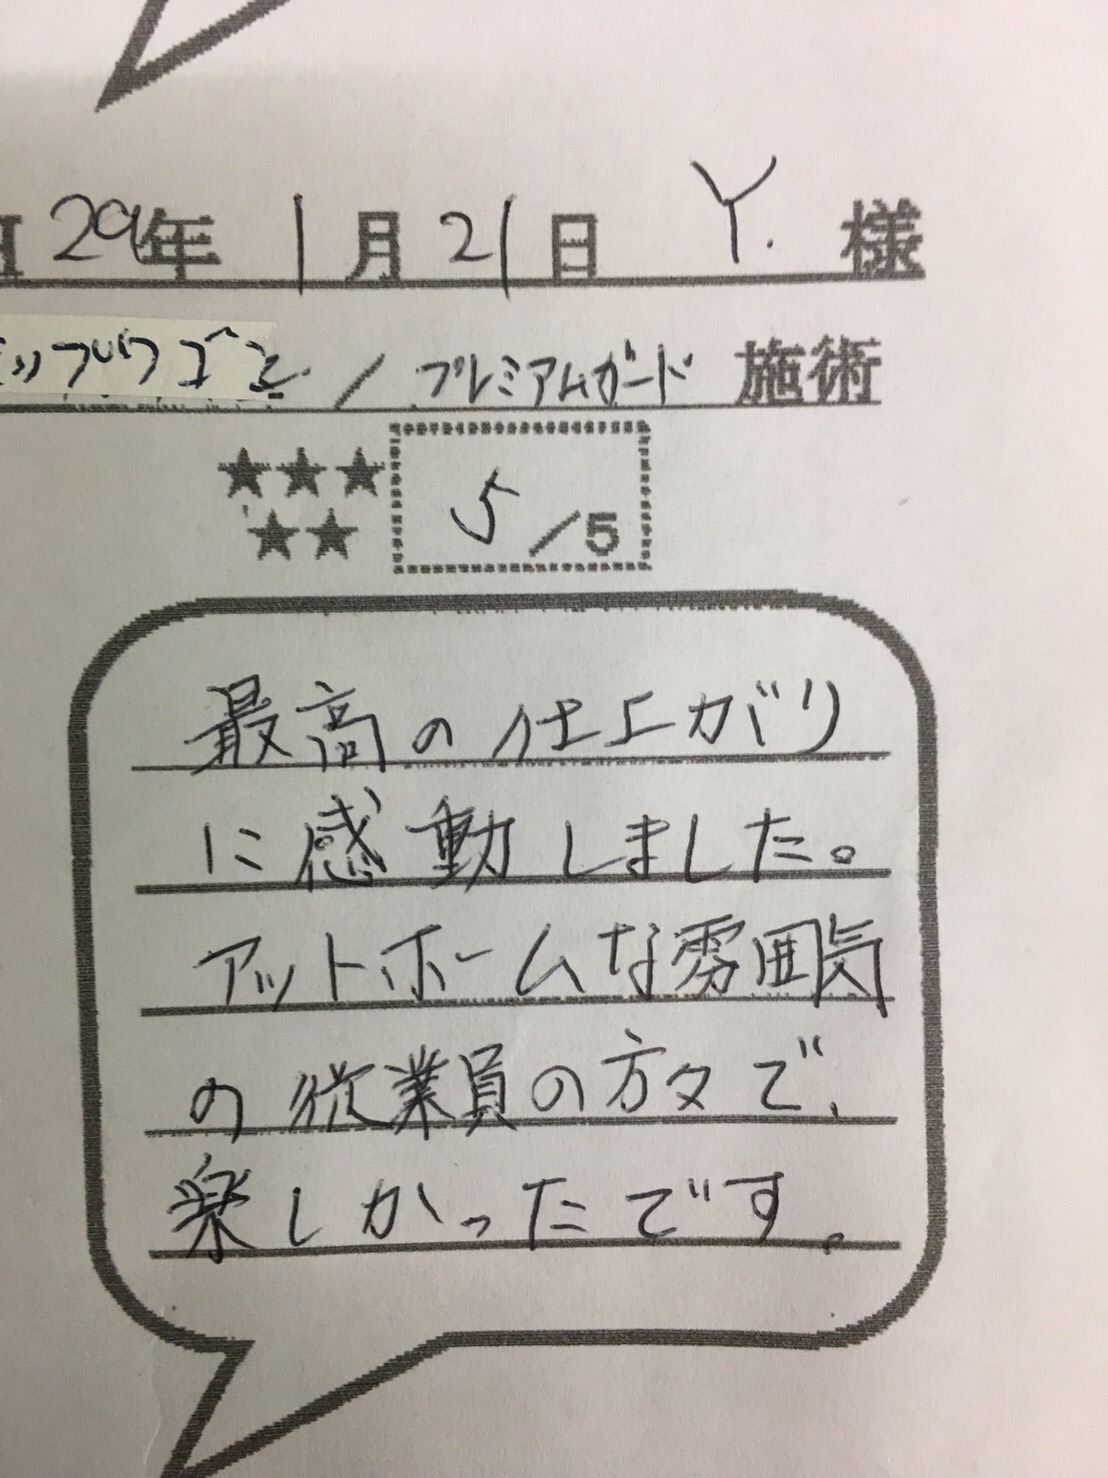 H29年1月21日 Y. 様
ップワゴン / プレミアムガード 施術
★★★
★★
5/5
最高の仕上がり
に感動しました。
アットホームな雰囲気
の従業員の方々で、
楽しかったです。